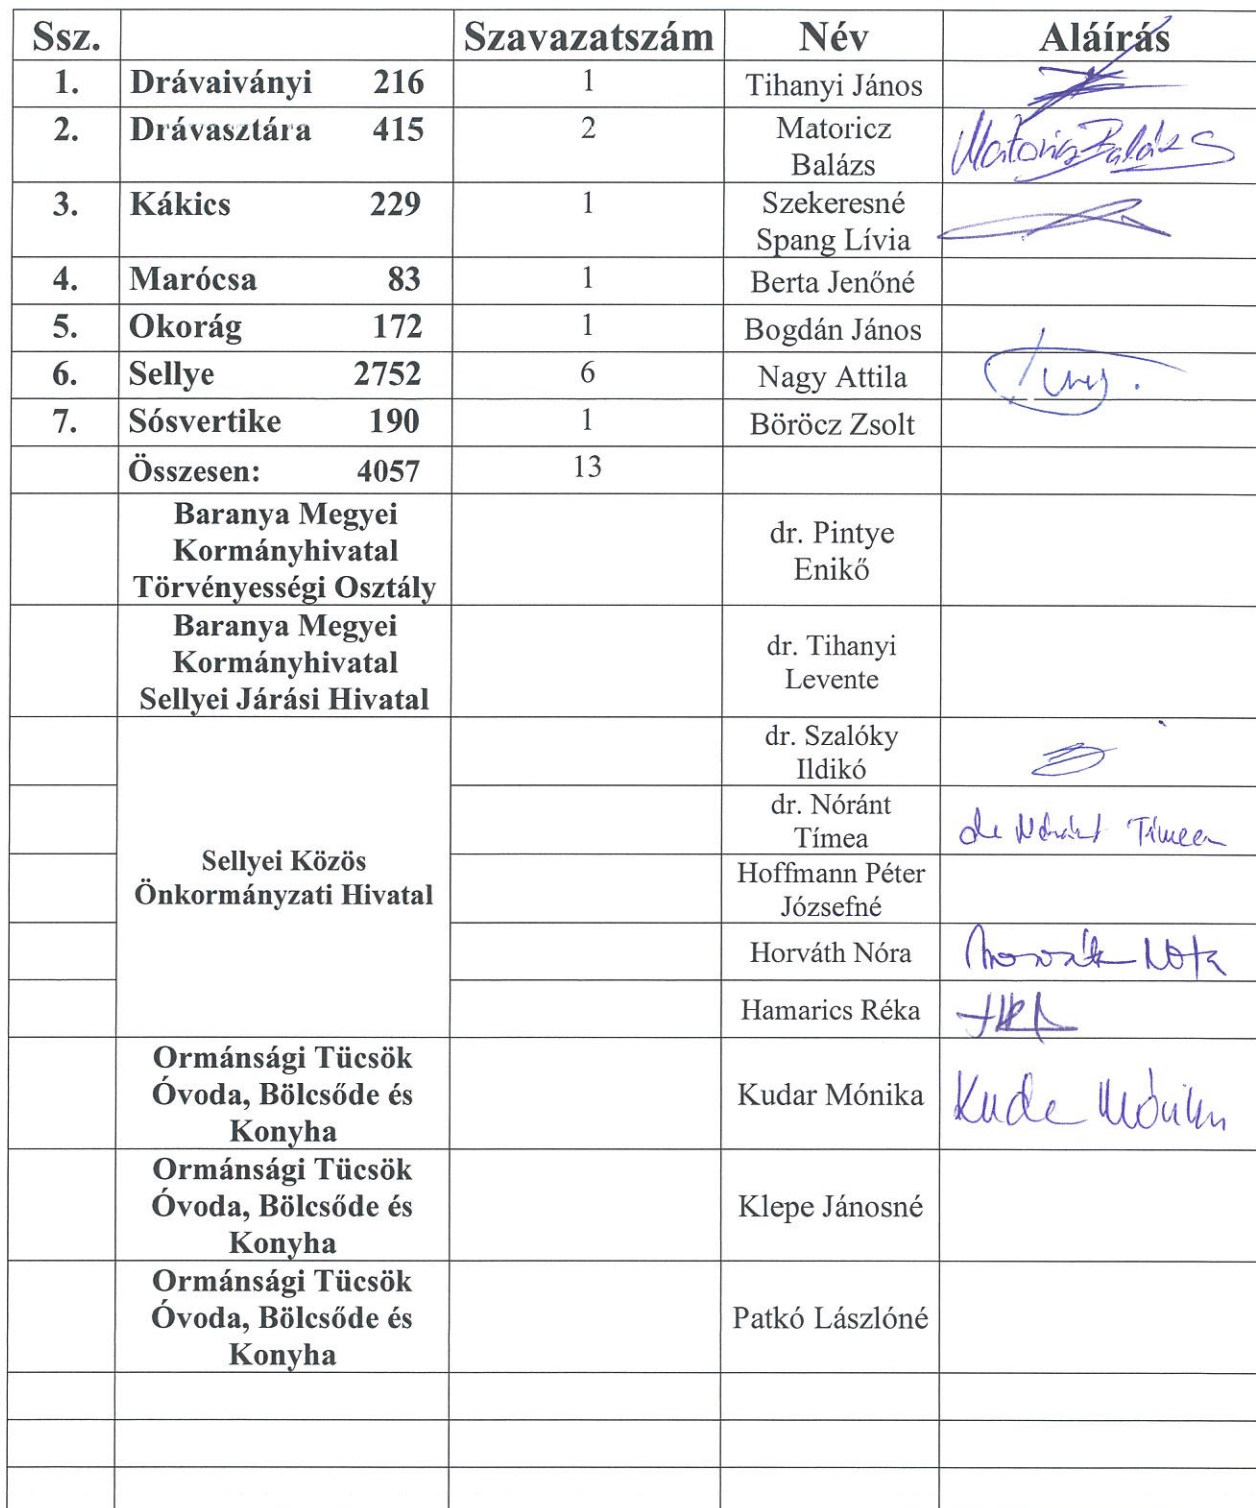 Ssz. Szavazatszám Név Aláírás
1. Drávaiványi 216 1 Tihanyi János
2. Drávasztára 415 2 Matoricz
Balázs Matoricz Balázs
3. Kákics 229 1 Szekeresné
Spang Lívia
4. Marócsa 83 1 Berta Jenőné
5. Okorág 172 1 Bogdán János
6. Sellye 2752 6 Nagy Attila
7. Sósvertike 190 1 Böröcz Zsolt
Összesen: 4057 13
Baranya Megyei
Kormányhivatal
Törvényességi Osztály
dr. Pintye
Enikő
Baranya Megyei
Kormányhivatal
Sellyei Járási Hivatal
dr. Tihanyi
Levente
Sellyei Közös
Önkormányzati Hivatal
dr. Szalóky
Ildikó
dr. Nóránt
Tímea
dr Nóránt Tímea
Hoffmann Péter
Józsefné
Horváth Nóra Horváth Nóra
Hamarics Réka
Ormánsági Tücsök
Óvoda, Bölcsőde és
Konyha
Kudar Mónika Kudar Mónika
Ormánsági Tücsök
Óvoda, Bölcsőde és
Konyha
Klepe Jánosné
Ormánsági Tücsök
Óvoda, Bölcsőde és
Konyha
Patkó Lászlóné